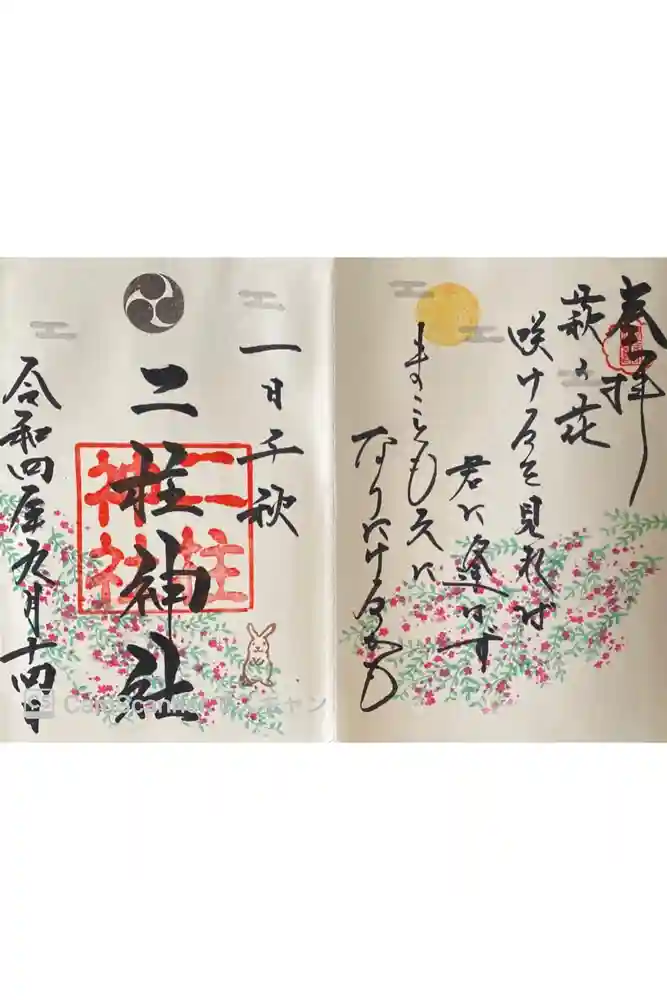 奉拝
萩の花
咲けるを見れば
君に逢はず
まことも久に
なりにけるかも
一日千秋
二柱神社
二柱神社
令和四年九月十四日
CamScanner でスキャン